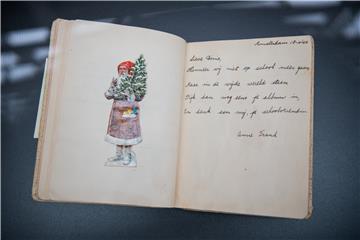 Amsterdam
Lieve Dinie,
Wanneer wij niet op school meer gaan
Maar in de wijde wereld staan
Kijk dan nog eens je album in,
En denk aan mij, je schoolvriendin
Anne Frank